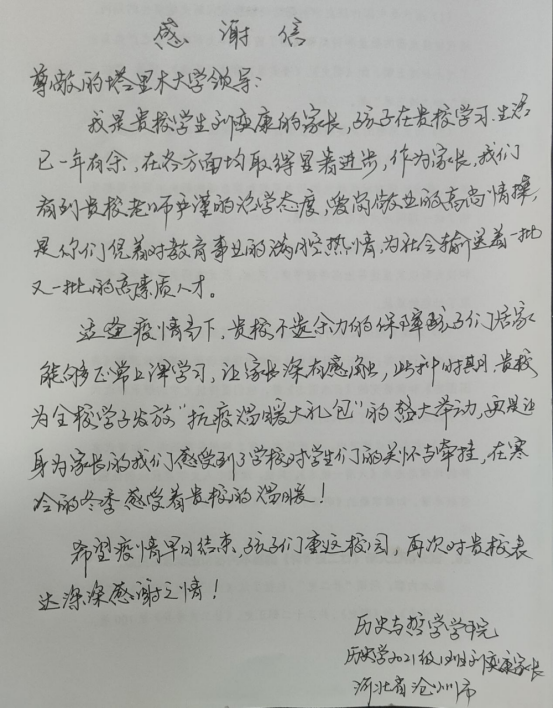 感谢信
尊敬的塔里木大学领导:
我是贵校学生刘奕康的家长,孩子在贵校学习.生活
已一年有余,在各方面均取得显著进步,作为家长,我们
看到贵校老师严谨的治学态度,爱岗敬业的高尚情操,
是你们凭着对教育事业的满腔热情,为社会输送着一批
又一批的高素质人才。
这登疫情当下,贵校不遗余力的保障孩子们居家
能够正常上课学习,让家长深有感触,此种时期,贵校
为全校学子发放“抗疫温暖大礼包”的盛大举动,更是让
身为家长的我们感受到了学校对学生们的关怀与牵挂,在寒
冷的冬季感受着贵校的温暖!
希望疫情早日结束,孩子们重返校园,再次对贵校表
达深深感谢之情!
历史与哲学学院
历史学2021级 班刘奕康家长
河北省沧州市